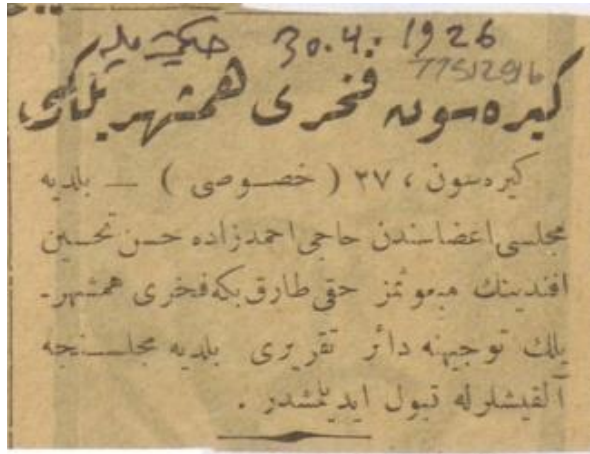 حاكميت مليه 30.4.1926
7751296
كیره‌سون فخری همشهریلكی
كیره‌سون ، ٢٧ ( خصوصی ) — بلدیه
مجلسی اعضاسندن حاجی احمدزاده حسن تحسین
افندینك مبعوثمز حقی طارق بكه فخری همشهر-
یلك توجیهنه دائر تقریری بلدیه مجلسنجه
آلقیشلرله قبول ایدیلمشدر .